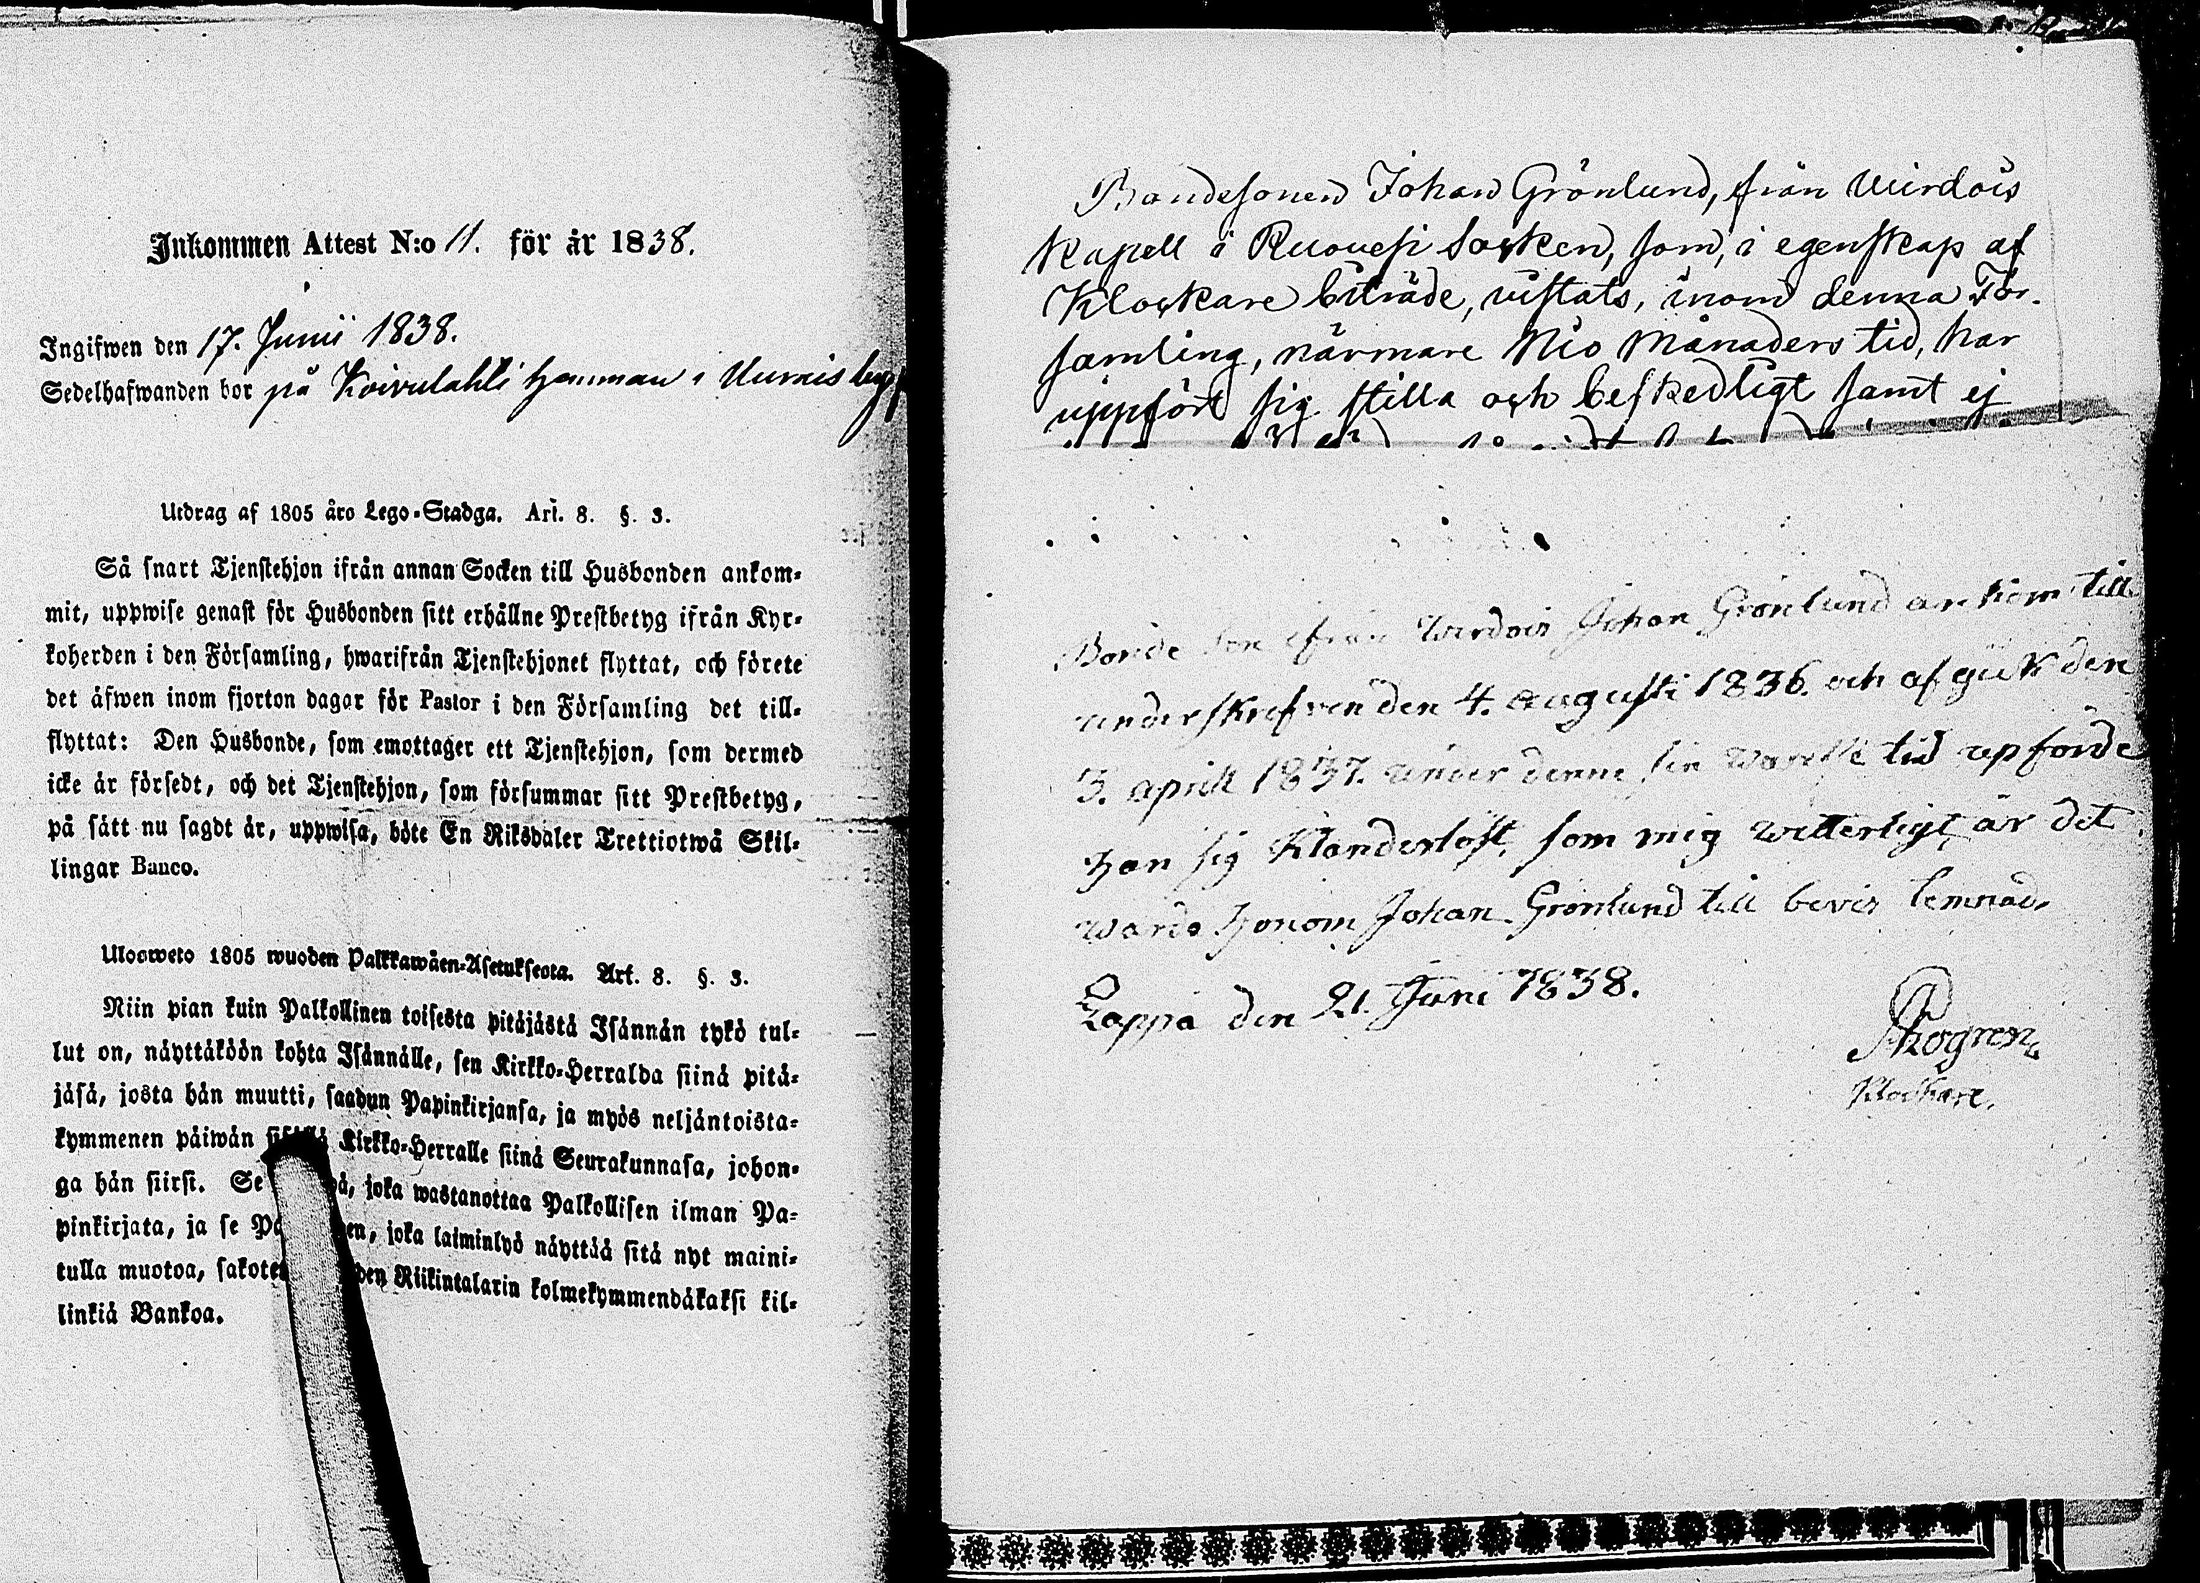 Inkommen Attest N:o 11. för år 1838.
Ingifwen den 17. Junii 1838.
Sedelhafwanden bor på Koivulahti hemman i
Utdrag af 1805 års Lego-Stadga. Art. 8. §. 3.
Så snart Tjenstehjon ifrån annan Socken till Husbonden ankom-
mit, uppwise genast för Husbonden sitt erhållne Prestbetyg ifrån Kyr-
koherden i den Församling, hwarifrån Tjenstehjonet flyttat, och förete
det äfwen inom fjorton dagar för Pastor i den Församling det till-
flyttat: Den Husbonde, som emottager ett Tjenstehjon, som dermed
icke är försedt, och det Tjenstehjon, som försummar sitt Prestbetyg,
på sätt nu sagdt är, uppwisa, böte En Riksdaler Trettiotwå Skil-
lingar Banco.
Ulosweto 1805 wuoden Palkkawäen-Asetuksesta. Art. 8. §. 3.
Niin pian kuin Palkollinen toisesta pitäjästä Isännän tykö tul-
lut on, näyttäköön kohta Isännälle, sen Kirkko-Herralda siinä pitä-
jäsä, josta hän muutti, saadun Papinkirjansa, ja myös neljäntoista-
kymmenen päiwän Kirkko-Herralle siinä Seurakunnasa, johon-
ga hän siirsi. Se joka wastanottaa Palkollisen ilman Pa-
pinkirjata, ja se joka laiminlyö näyttää sitä nyt maini-
tulla muotoa, Riikintalarin kolmekymmendäkaksi kil-
linkiä Bankoa.
Bondesonen Johan Grönlund, från Virdois
Kapell i Ruovesi Socken, som, i egenskap af
Klockare biträde, vistats, inom denna För-
samling, närmare Nio Månaders tid, har
uppfört sig stilla och beskedligt samt ej
Bonde Son ifrån Wirdois Johan Grönlund ankom till
underskrefven den 4. augusti 1836. och afgick den
3. april 1837. under denne sin tid upförde
Han sig Klanderlöst, som mig witterligt är det
warde Honom Johan Grönlund till bevis lemnad,
Lappå den 21. Juni 1838.
Skogren
Klockare.